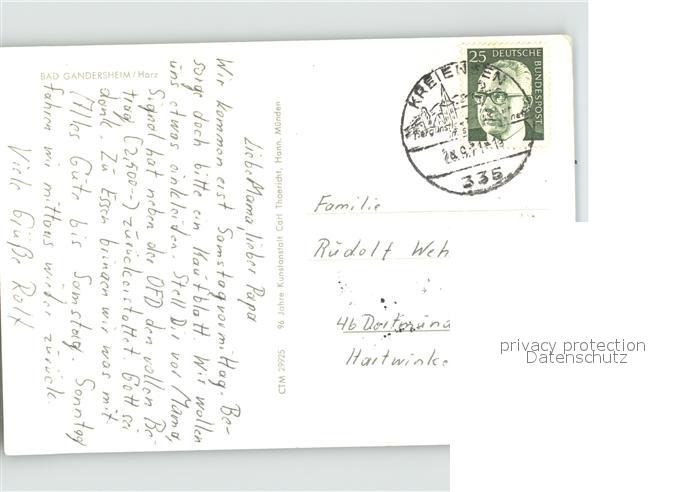 BAD GANDERSHEIM / Harz
Liebe Mama, lieber Papa
Wir kommen erst Samstagvormittag. Be-
sorge doch bitte ein Kaufblatt. Wir wollen
uns etwas einkleiden. Stell Dir vor Mama,
Signal hat neben der OFD den vollen Be-
trag (2.500.-) zurückerstattet. Gott sei
dank. Zu Essen bringen wir was mit.
Alles Gute bis Samstag. Sonntag
fahren wir mittags wieder zurück.
Viele Grüße Rolf
CTM 29925 96 Jahre Kunstanstalt Carl Thoericht, Hann. Münden
25 DEUTSCHE BUNDESPOST
KREIENSEN
335
Familie
Rudolf Weh
46 Dortmund
Hartwinke
privacy protection
Datenschutz